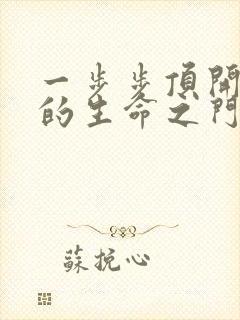 一步步頂開
的生命之門
蘇挽心